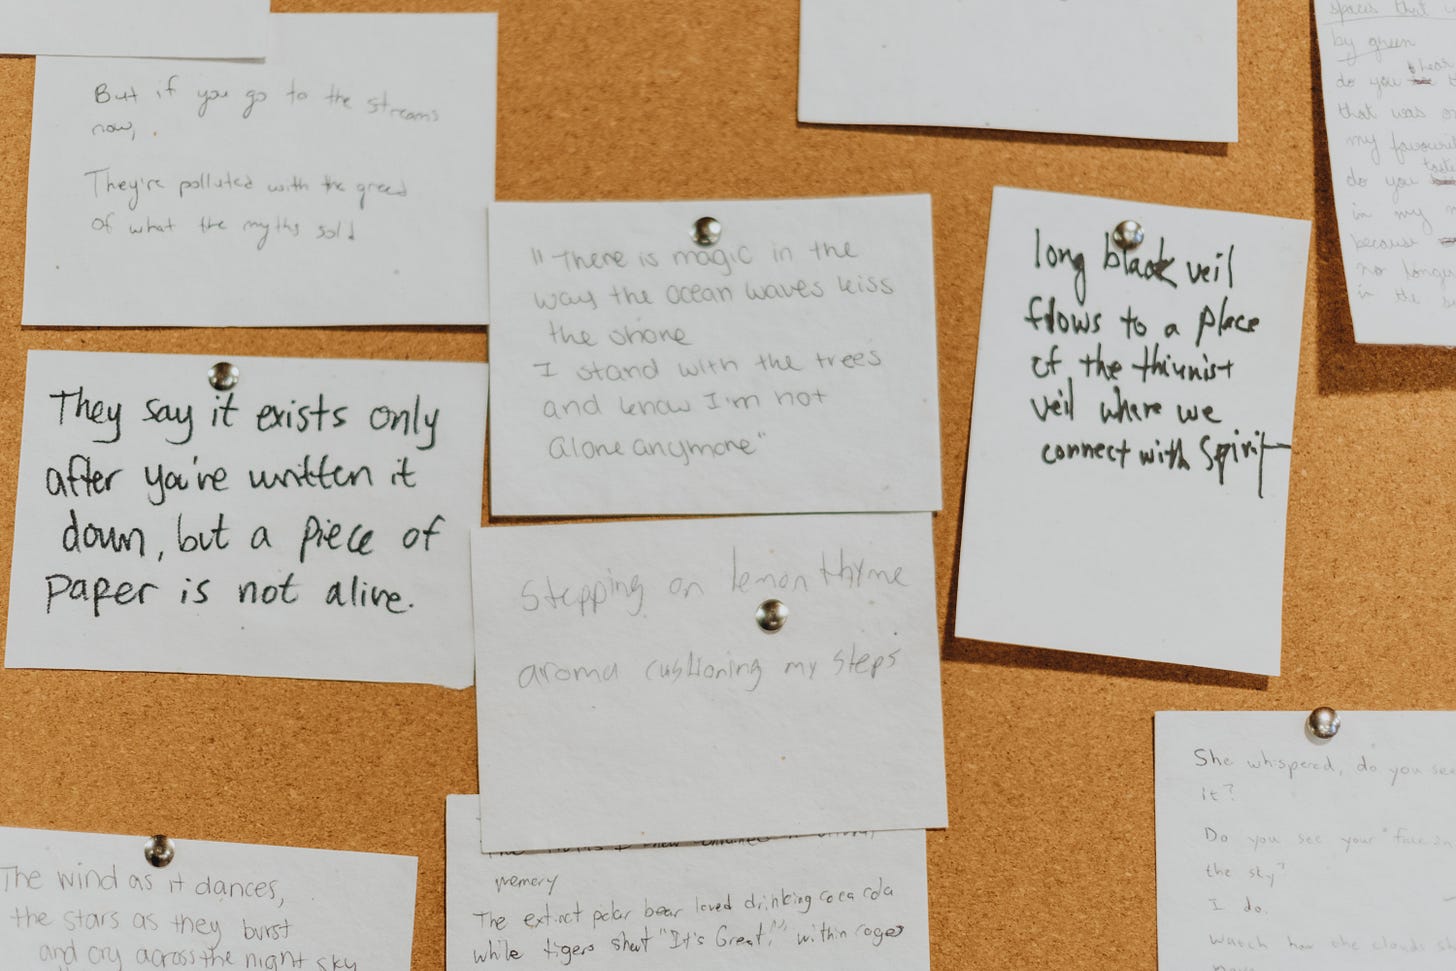 But if you go to the streams
now,
They're polluted with the greed
of what the myths sold
spaces that
by green
hear
do you
that was
my favourit
do you
taste
in my
because
no longe
in the
"There is magic in the
way the ocean waves kiss
the shore
I stand with the trees
and know I'm not
alone anymore"
long black veil
flows to a place
of the thinnist
veil where we
connect with Spirit
They say it exists only
after you've written it
down, but a piece of
paper is not alive.
Stepping on lemon thyme
aroma cushioning my steps
She whispered, do you see
it?
Do you see your "face in
the sky?
I do.
Watch how the clouds sh
The wind as it dances,
the stars as they burst
and cry across the night sky
memory
The extinct polar bear loved drinking coca cola
while tigers shout "It's Great!" within cages